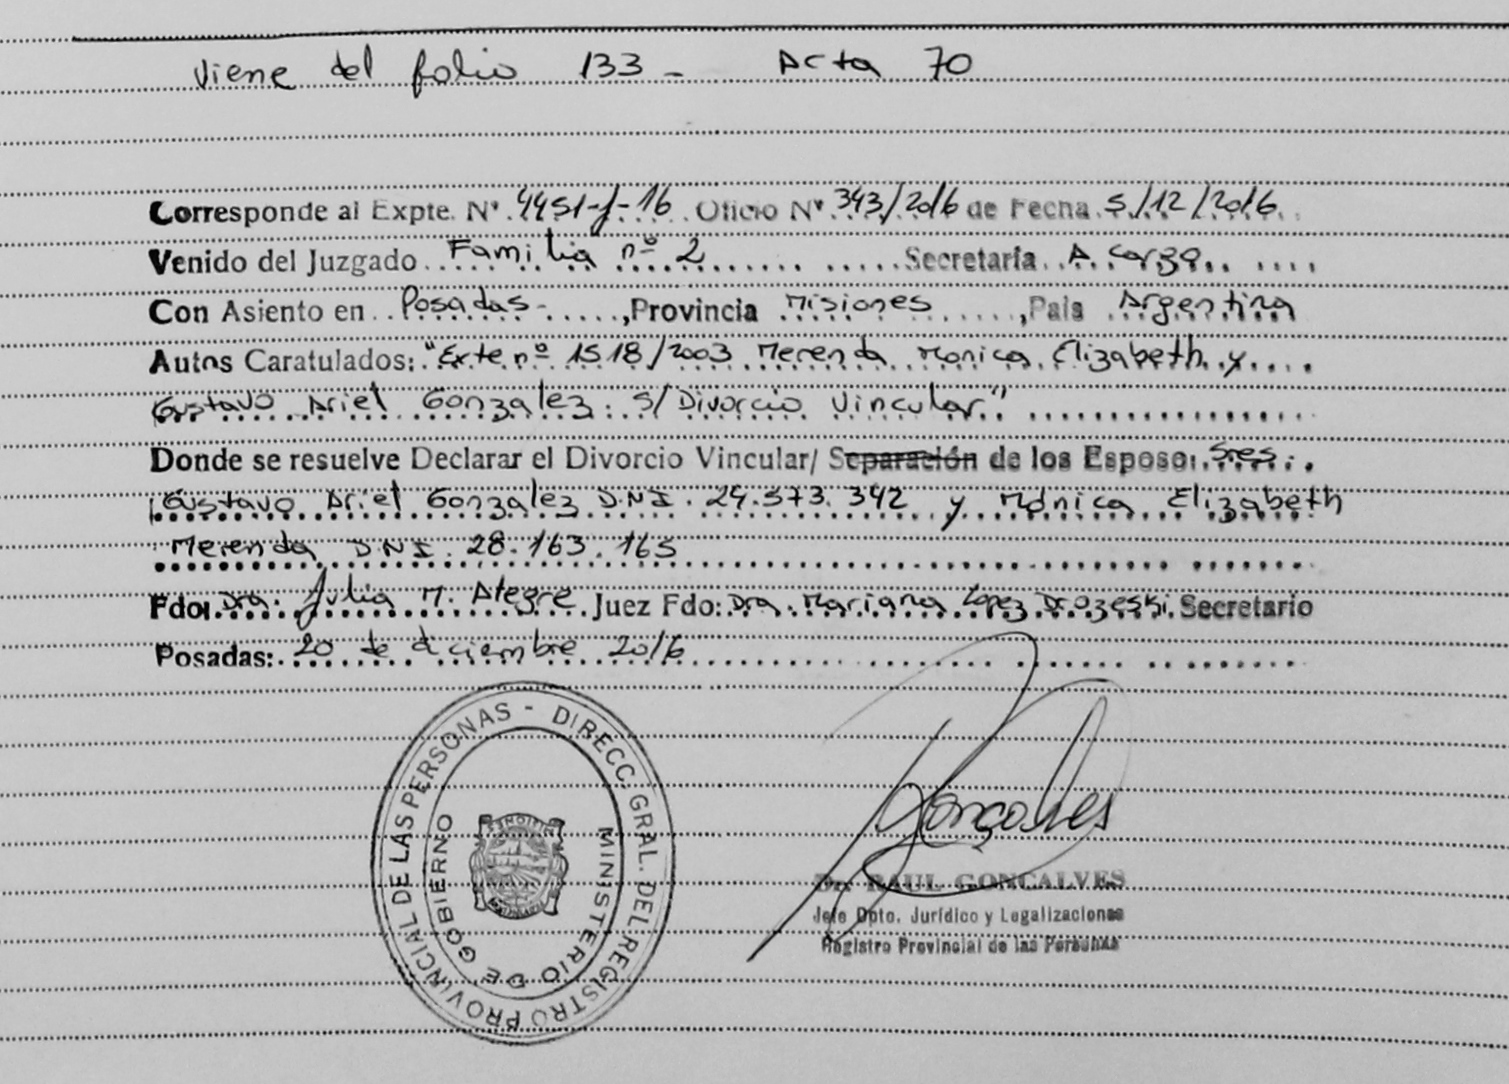 Viene del folio 133 - Acta 70
Corresponde al Expte. Nº 4451-J-16 Oficio Nº 343/2016 de Fecha 5/12/2016
Venido del Juzgado Familia nº 2 Secretaria A cargo
Con Asiento en Posadas- , Provincia Misiones , Pais Argentina
Autos Caratulados: "Exte nº 1518/2003 Merenda Monica Elizabeth y
Gustavo Ariel Gonzalez: S/ Divorcio Vincular"
Donde se resuelve Declarar el Divorcio Vincular/ Separación de los Esposo: Sres.
Gustavo Ariel Gonzalez D.N.I. 24.573.342 y Mónica Elizabeth
Merenda D.N.I. 28.163.165
Fdo: Dra. Julia M. Alegre Juez Fdo: Dra. Mariana Lopez Secretario
Posadas: 20 de diciembre 2016
DIRECC. GRAL. DEL REGISTRO PROVINCIAL DE LAS PERSONAS -
MINISTERIO DE GOBIERNO
MISIONES
Gonçalves
Dr. RAUL GONCALVES
Jefe Dpto. Jurídico y Legalizaciones
Registro Provincial de las Personas